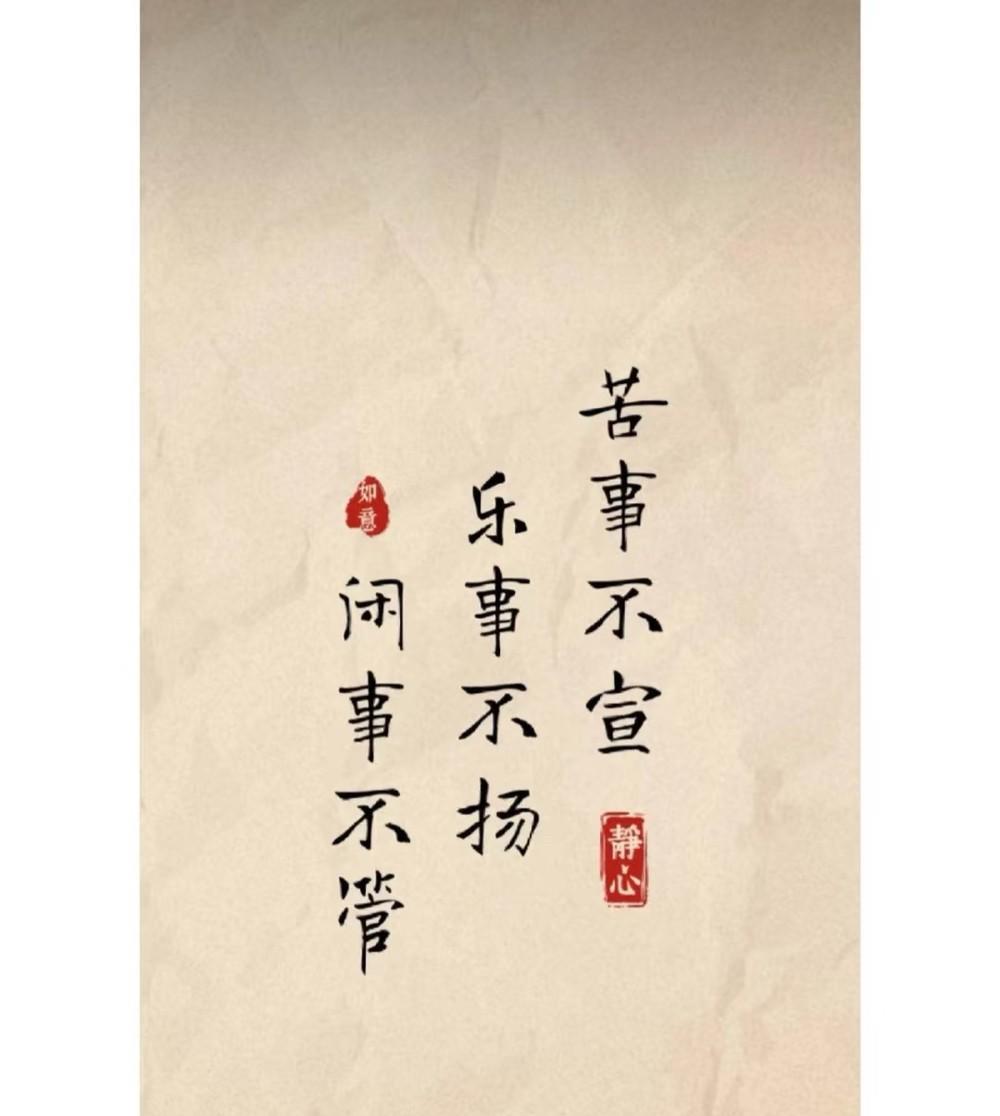 苦事不宣
靜心
乐事不扬
如意
闲事不管